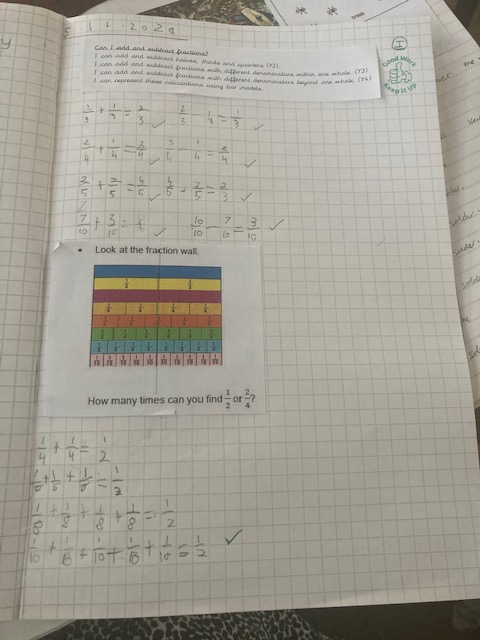 5 11.2025
Can I add and subtract fractions?
I can add and subtract halves, thirds and quarters (Y2).
I can add and subtract fractions with different denominators within one whole. (Y3)
I can add and subtract fractions with different denominators beyond one whole. (Y4)
I can represent these calculations using bar models.
I
Good Work
Keep it Up
1/3 + 1/3 = 2/3 2/3 - 1/3 = 1/3
2/4 + 1/4 = 3/4 - 1/4 = 2/4
2/5 + 2/5 = 4/5 4/5 - 2/5 = 2/3
7/10 + 3/10 = 1 10/10 - 7/10 = 3/10
• Look at the fraction wall.
1/2 1/2
1/4 1/4 1/4 1/4
1/10 1/10 1/10 1/10 1/10 1/10 1/10 1/10 1/10 1/10
How many times can you find 1/2 or 2/4?
1/4 + 1/4 = 1/2
1/6 + 1/6 + 1/6 = 1/2
1/8 + 1/8 + 1/8 + 1/8 = 1/2
1/10 + 1/10 + 1/10 + 1/10 + 1/10 = 1/2